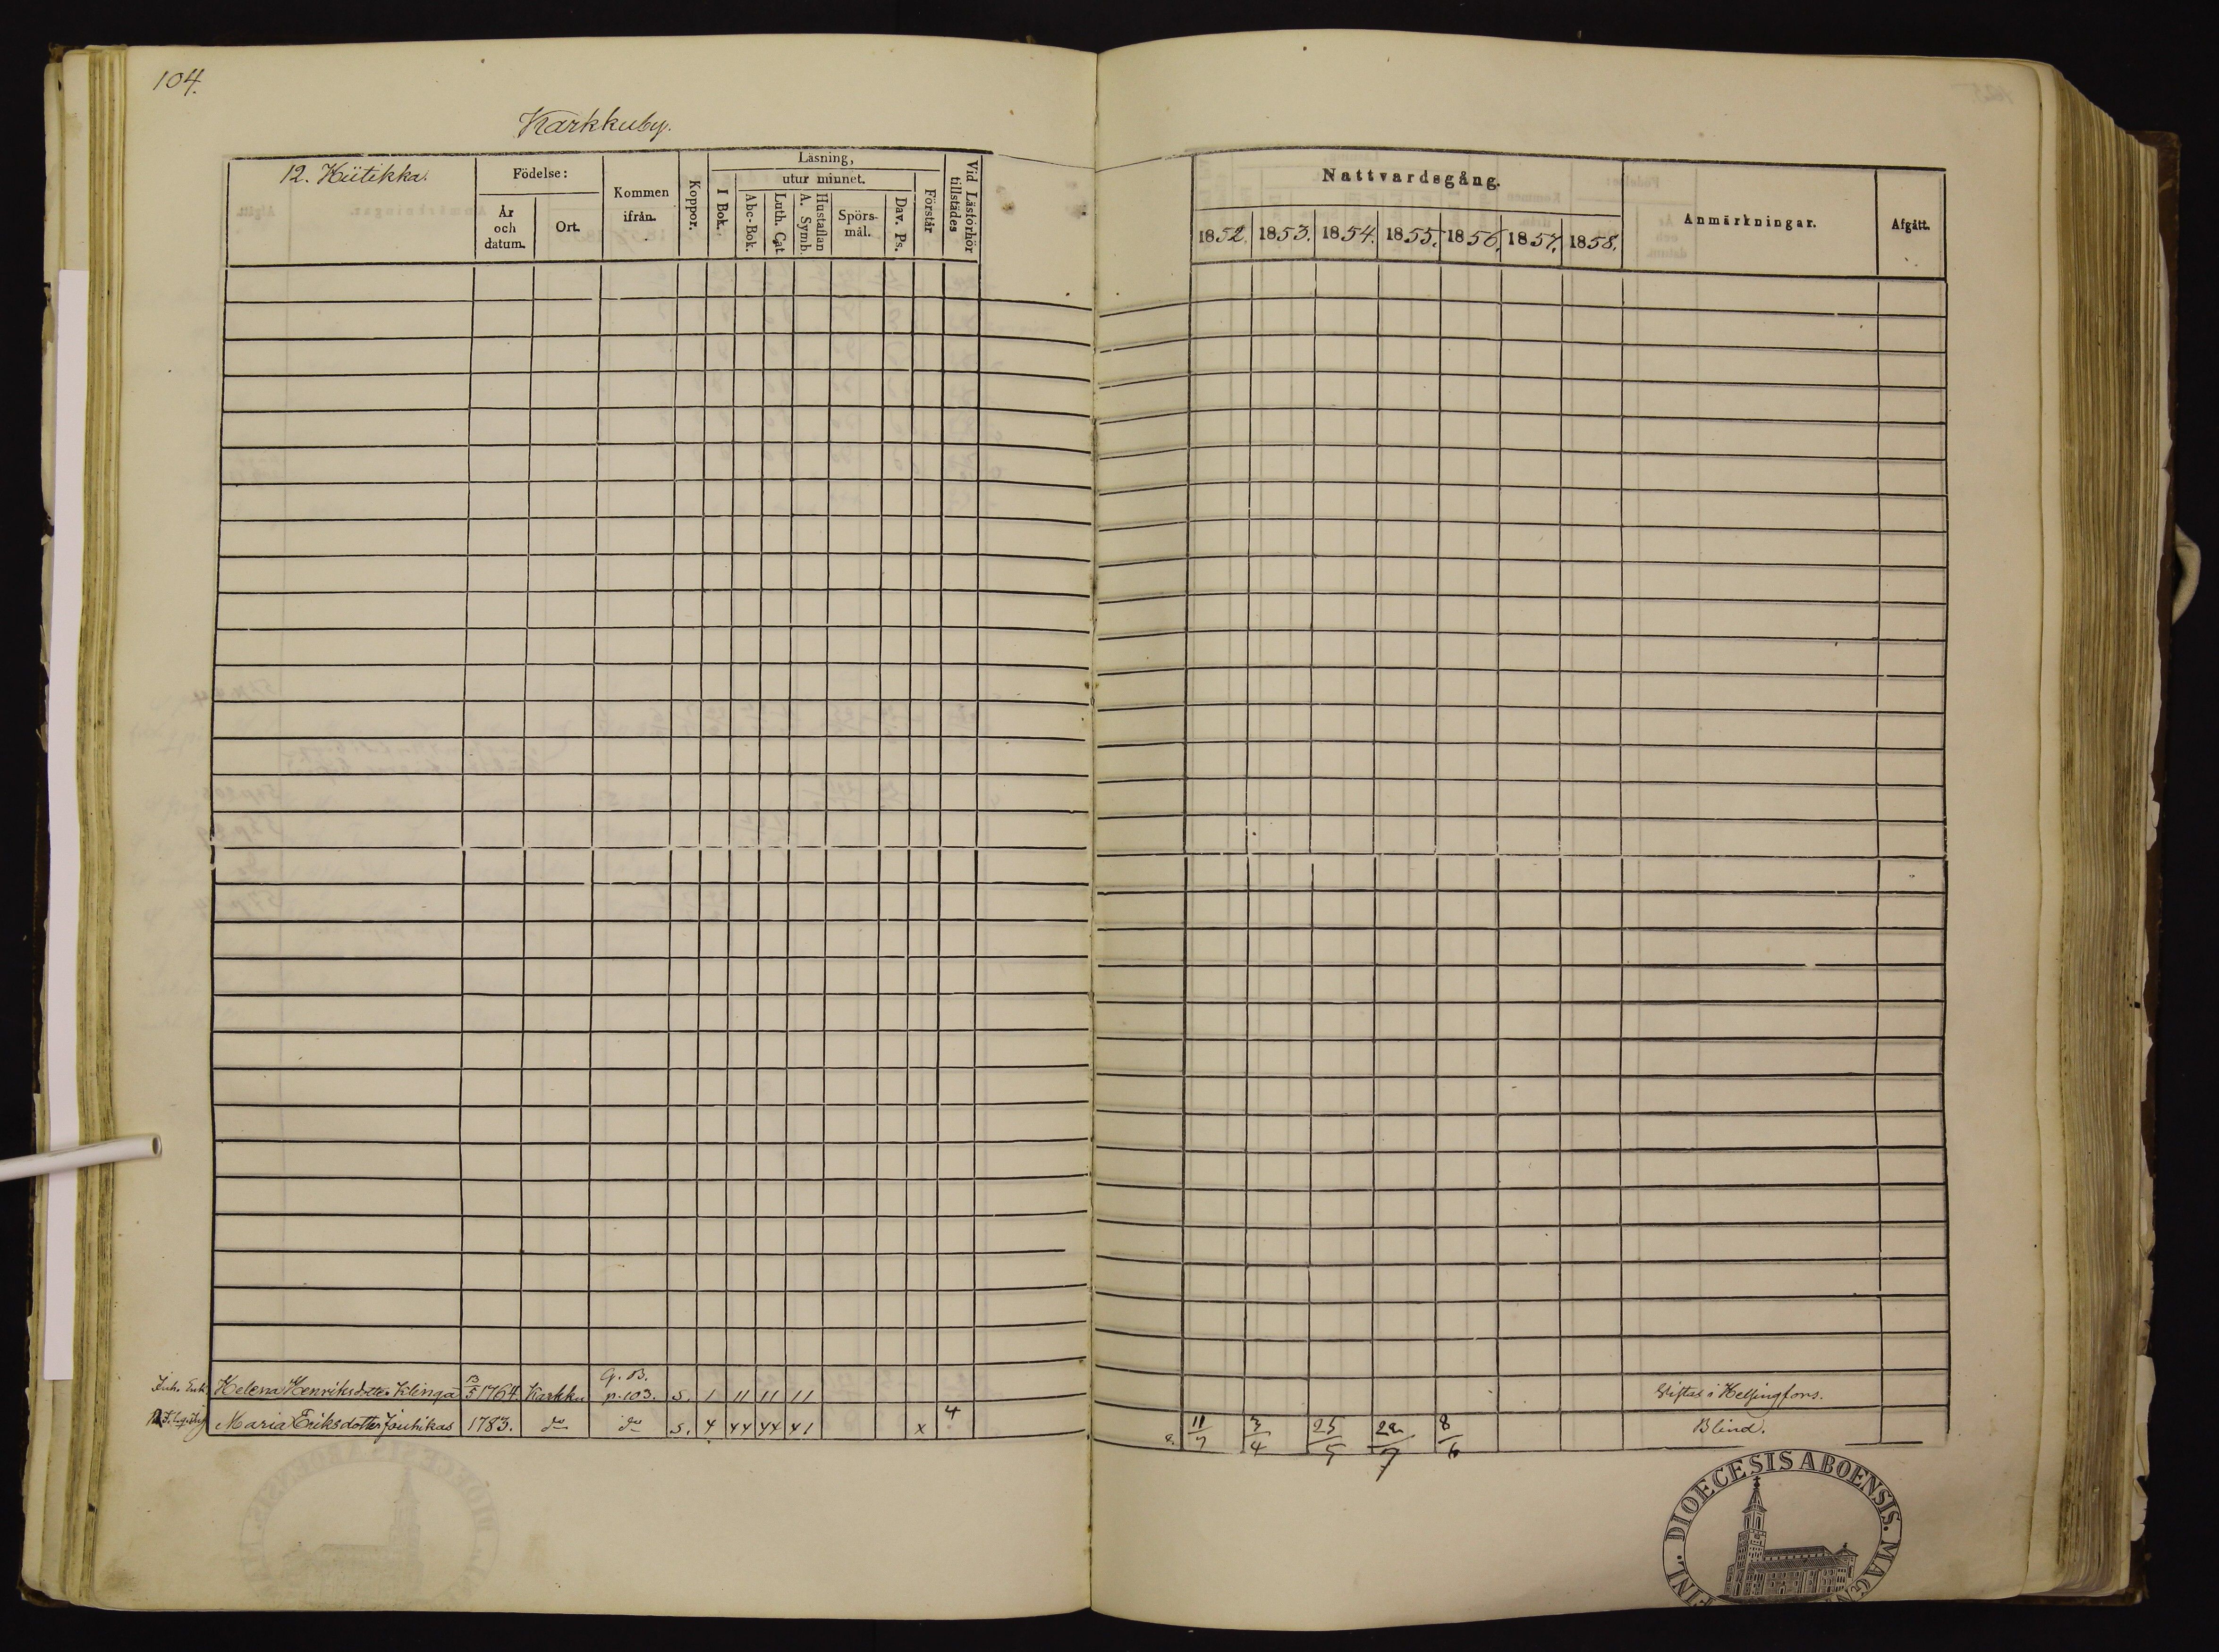 104.
Karkkuby.
12. Hiitikka.
Födelse:
År och datum.
Ort.
Kommen ifrån.
Koppor.
Läsning,
I Bok.
utur minnet.
Abc-Bok.
Luth. Cat
Hustaflan A. Symb.
Spörsmål.
Dav. Ps.
Förstår
Vid Läsförhör tillstädes
Nattvardsgång.
1852. 1853. 1854. 1855. 1856. 1857. 1858.
Anmärkningar.
Afgått.
Inh. Enk. Helena Henriksdotter Klinga 13/5 1764. Karkku Gp. B. p. 103. s. 1 11 11 11 Vistas i Helsingfors.
Maria Eriksdotter Jouhikas 1783. do do s. 4 44 44 41 x 4 11/7 3/4 25/5 22/7 8/6 Blind.
FINL. DIOECESIS ABOENSIS. MAGN